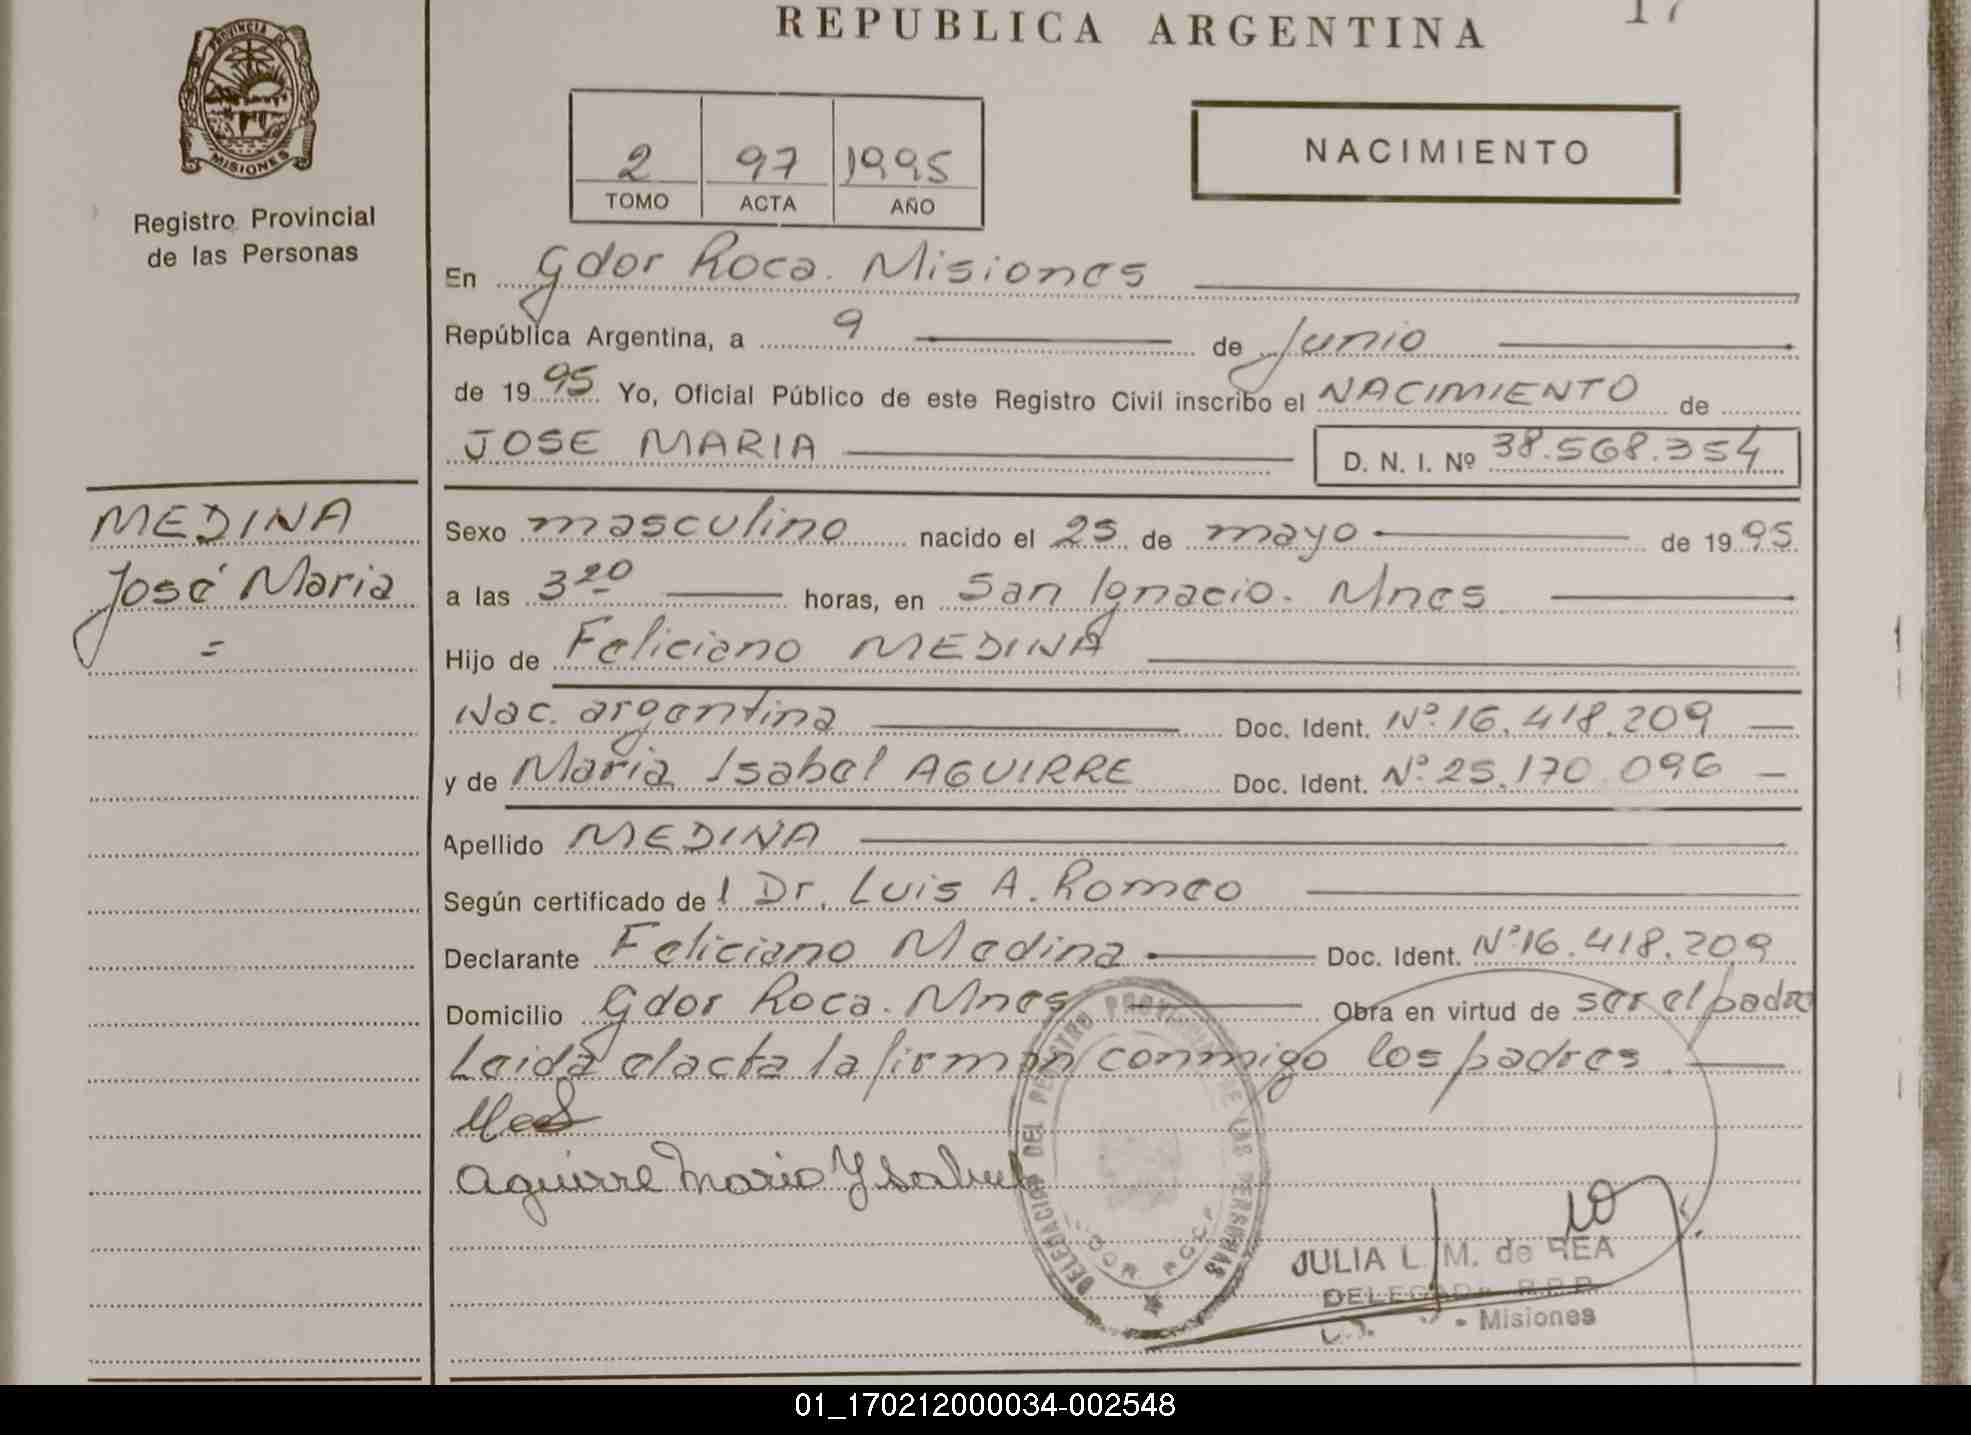 REPUBLICA ARGENTINA
17
PROVINCIA DE
MISIONES
Registro Provincial
de las Personas
2 97 1995
TOMO ACTA AÑO
NACIMIENTO
En Gdor Roca. Misiones
República Argentina, a 9 de Junio
de 1995 Yo, Oficial Público de este Registro Civil inscribo el NACIMIENTO de
JOSE MARIA D. N. I. Nº 38.568.354
MEDINA
José Maria
=
Sexo masculino nacido el 25 de mayo de 1995
a las 3 20 horas, en San Ignacio. Mnes
Hijo de Feliciano MEDINA
Nac. argentina Doc. Ident. Nº 16.418.209
y de Maria Isabel AGUIRRE Doc. Ident. Nº 25.170.096
Apellido MEDINA
Según certificado de l Dr. Luis A. Romeo
Declarante Feliciano Medina Doc. Ident. Nº 16.418.209
Domicilio Gdor Roca. Mnes Obra en virtud de ser el padre
Leida el acta la firman conmigo los padres.
Aguirre Maria Ysabel
DELEGACION DEL REGISTRO PROVINCIAL DE LAS PERSONAS
GDOR. ROCA
JULIA L. M. de REA
DELEGADA R.P.P.
- Misiones
01_170212000034-002548